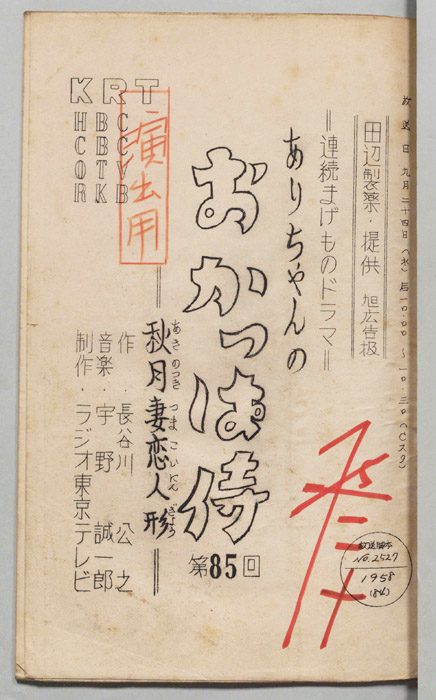 放送日 九月二十四日(水) 后一〇.〇〇〜一〇.三〇(Cスタ)
田辺製薬・提供 旭広告扱
=連続まげものドラマ=
ありちゃんの
おかっぱ侍
第85回
秋月妻恋人形
あきのつき つまこいにんぎょう
作・長谷川公之
音楽・宇野誠一郎
制作・ラジオ東京テレビ
KRT
CCVB
BBTK
HCOR
演出用
放送脚本
NO.2527
1958